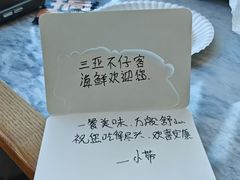 三亚不仔客
海鲜欢迎您.
一餐美味,为般舒心
祝您吃得尽兴,欢喜安康
——小郑